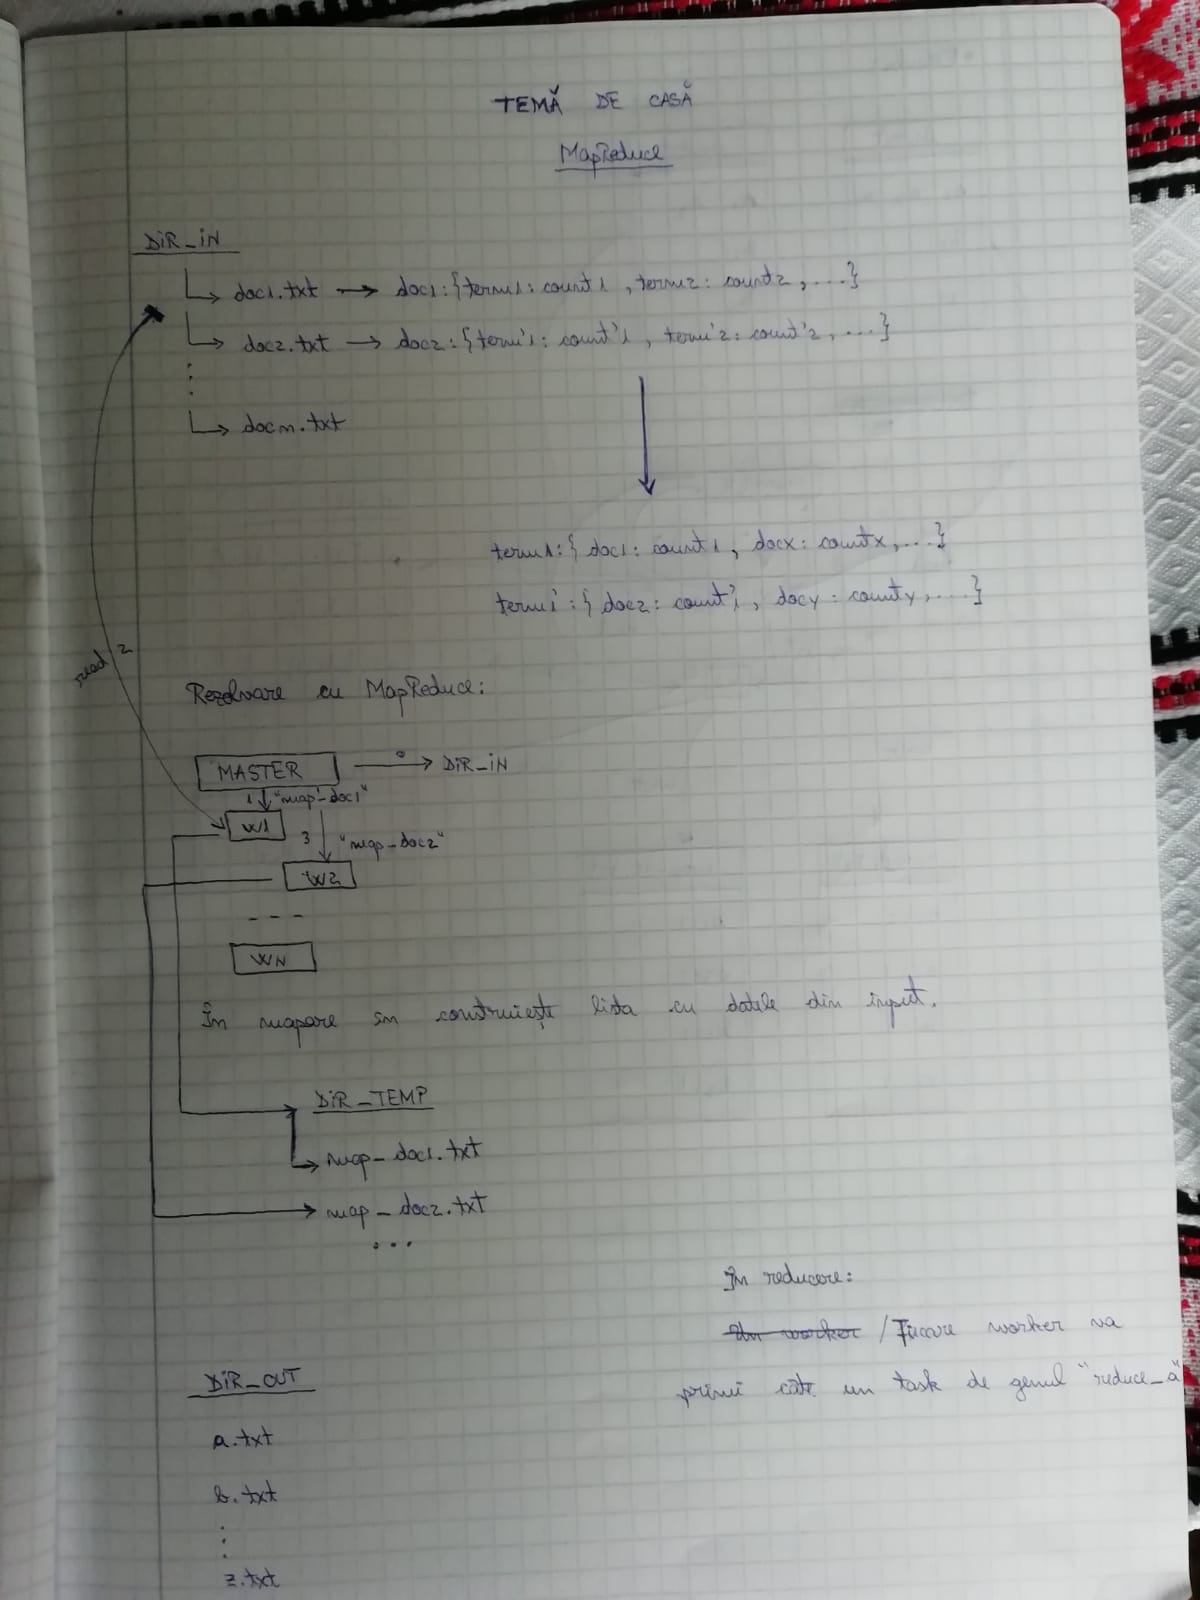 TEMĂ DE CASĂ
MapReduce
DIR_IN
doc1.txt → doc1:{termu1: count1, termu2: count2, ....}
doc2.txt → doc2:{termu'1: count'1, termu'2: count'2, ...}
docn.txt
termu1:{ doc1: count1, docx: countx, ...}
termu'1:{ doc2: count'1, docy: county, ....}
read 2
Rezolvare cu MapReduce:
MASTER 0 → DIR_IN
1 "map-doc1"
W1 3 "map-doc2"
W2
---
WN
În mapare se construiește lista cu datele din input.
DIR_TEMP
map-doc1.txt
map-doc2.txt
...
În reducere:
Un worker / Fiecare worker va
primi câte un task de genul "reduce_a"
DIR_OUT
a.txt
b.txt
z.txt